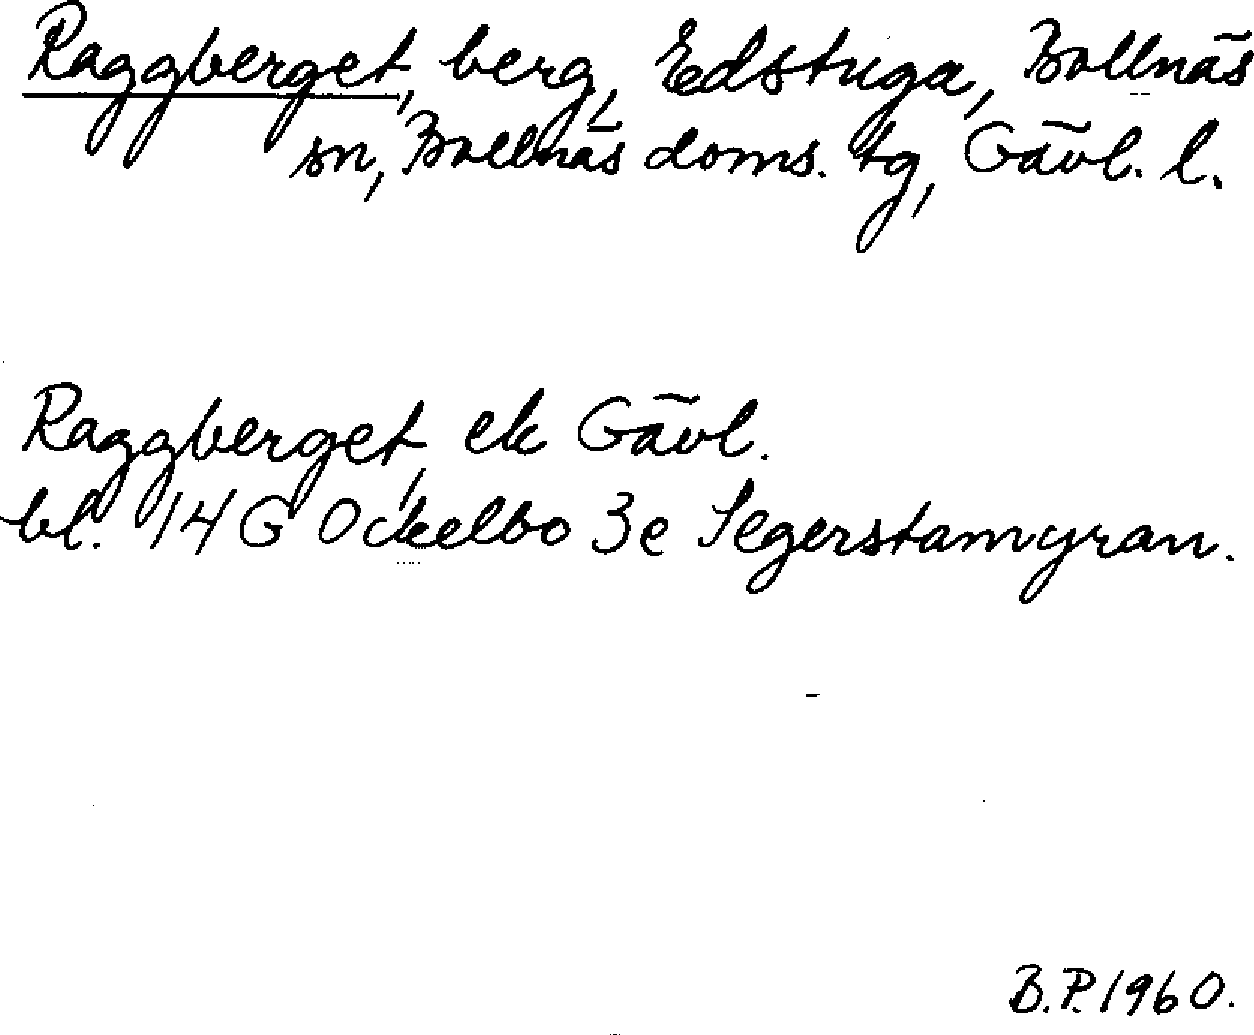 Raggberget, berg, Edstuga, Bollnäs
sn, Bollnäs doms. tg, Gävl. l.
Raggberget, ek Gävl.
bl. 14G Ockelbo 3e Segerstamyran.
B.P. 1960.